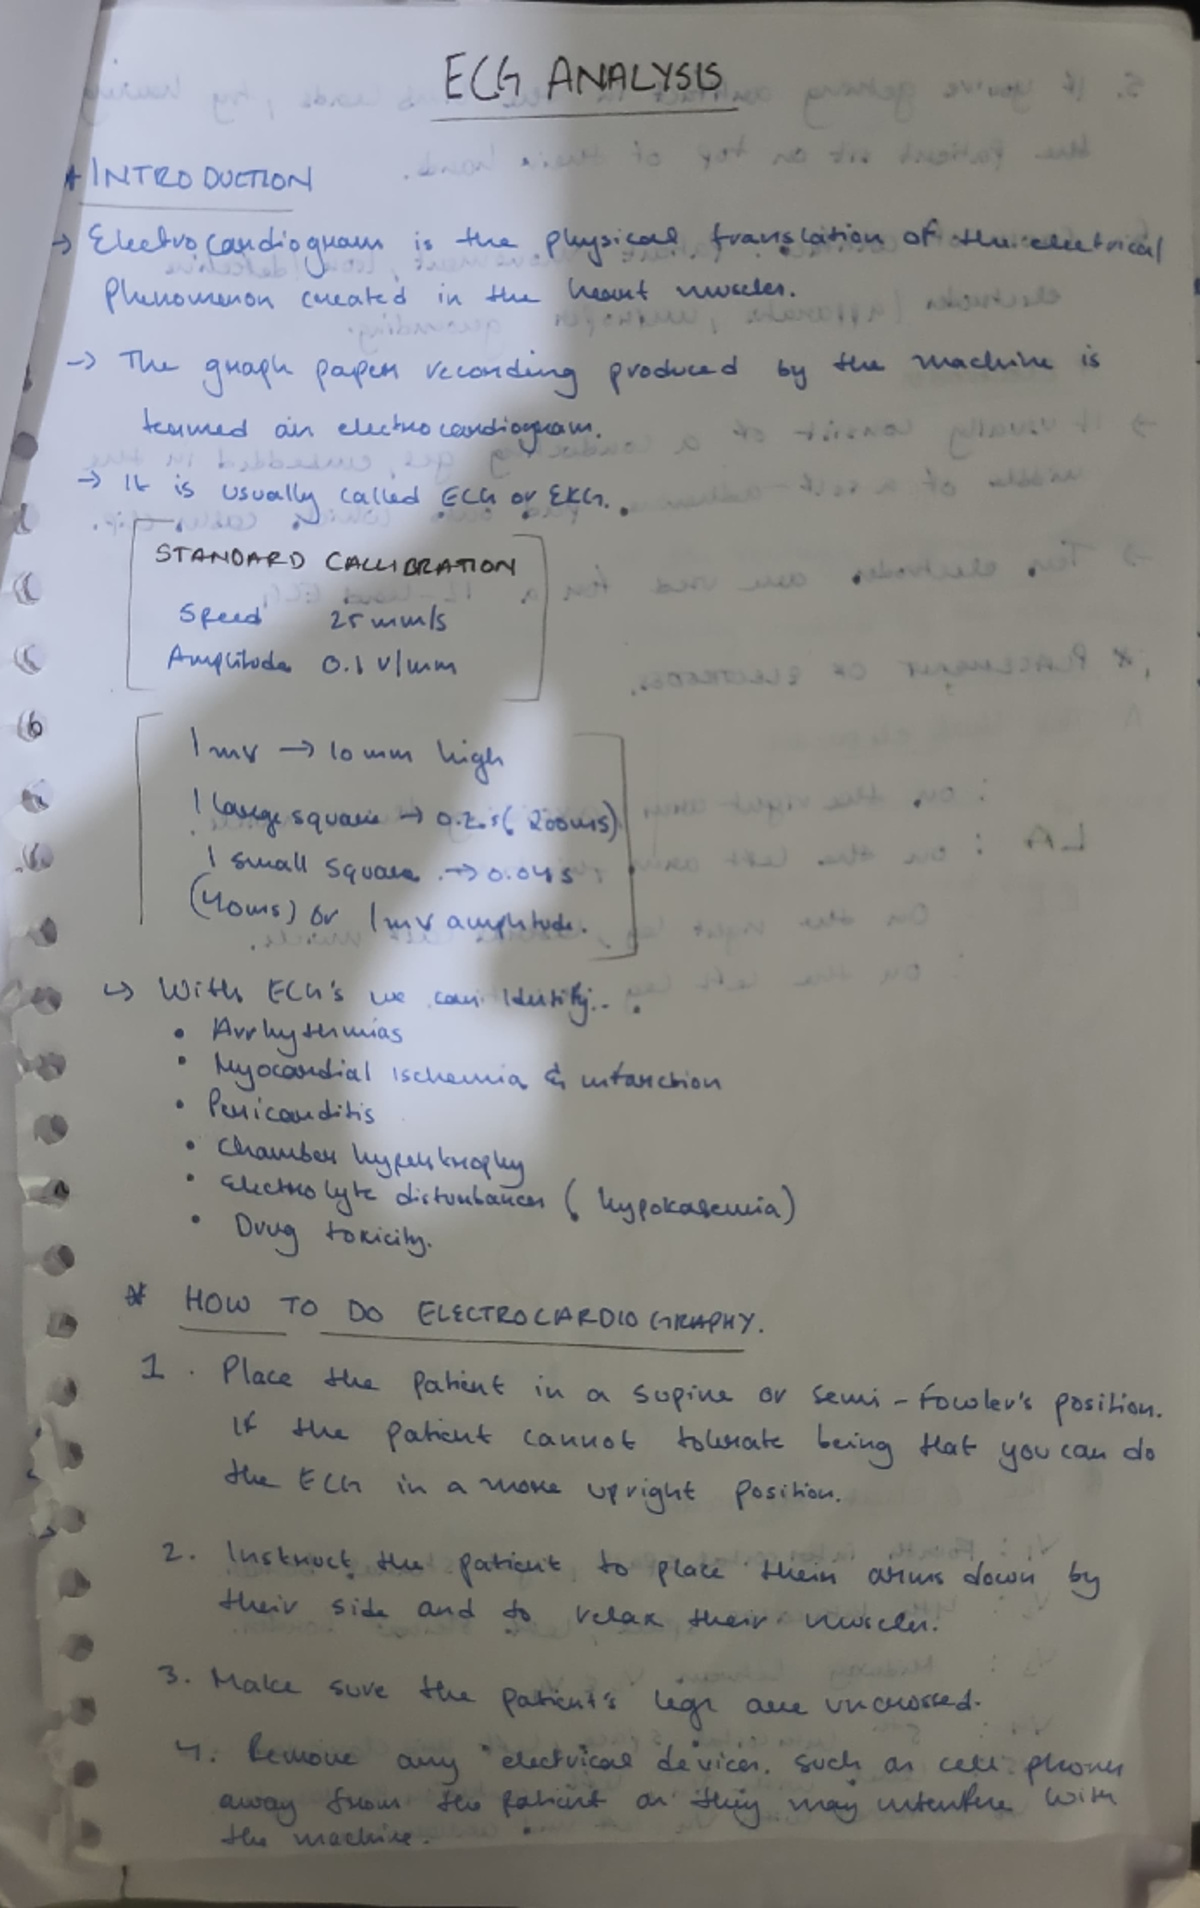 ECG ANALYSIS
* INTRODUCTION
→ Electrocardiogram is the physical translation of the electrical
phenomenon created in the heart muscles.
→ The graph paper recording produced by the machine is
termed an electrocardiogram.
→ It is usually called ECG or EKG.
STANDARD CALLIBRATION
Speed 25 mm/s
Amplitude 0.1 v/mm
1 mv → 10 mm high
1 large square → 0.2s (200ms)
1 small square → 0.04s
(40ms) or 1mv amplitude.
↳ With ECG's we can identify..
• Arrhythmias
• Myocardial ischemia & infarction
• Pericarditis
• Chamber hypertrophy
• Electrolyte disturbances ( hypokalemia)
• Drug toxicity.
* HOW TO DO ELECTROCARDIOGRAPHY.
1. Place the patient in a supine or semi-Fowler's position.
If the patient cannot tolerate being that you can do
the ECG in a more upright position.
2. Instruct the patient to place their arms down by
their side and to relax their muscles.
3. Make sure the patient's legs are uncrossed.
4. Remove any electrical devices, such as cell phones
away from the patient as they may interfere with
the machine.